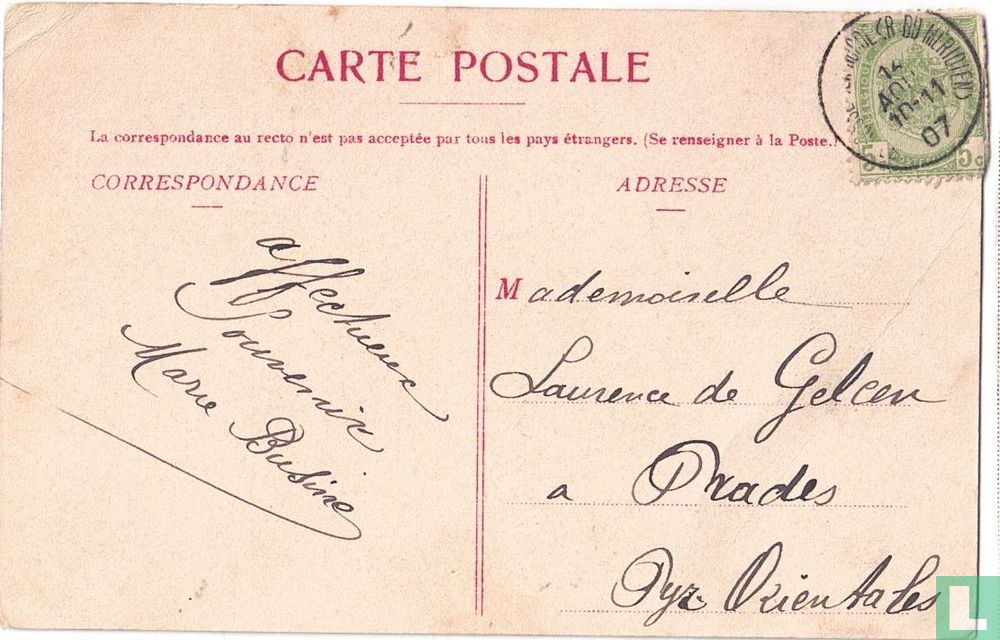 CARTE POSTALE
La correspondance au recto n'est pas acceptée par tous les pays étrangers. (Se renseigner à la Poste.)
CORRESPONDANCE
ADRESSE
affectueux
Souvenir
Marie Busine
Mademoiselle
Laurence de Gelcen
a Prades
Pyr. Orientales
DU MERIDIEN)
14
AOU
10-11
07
5 c